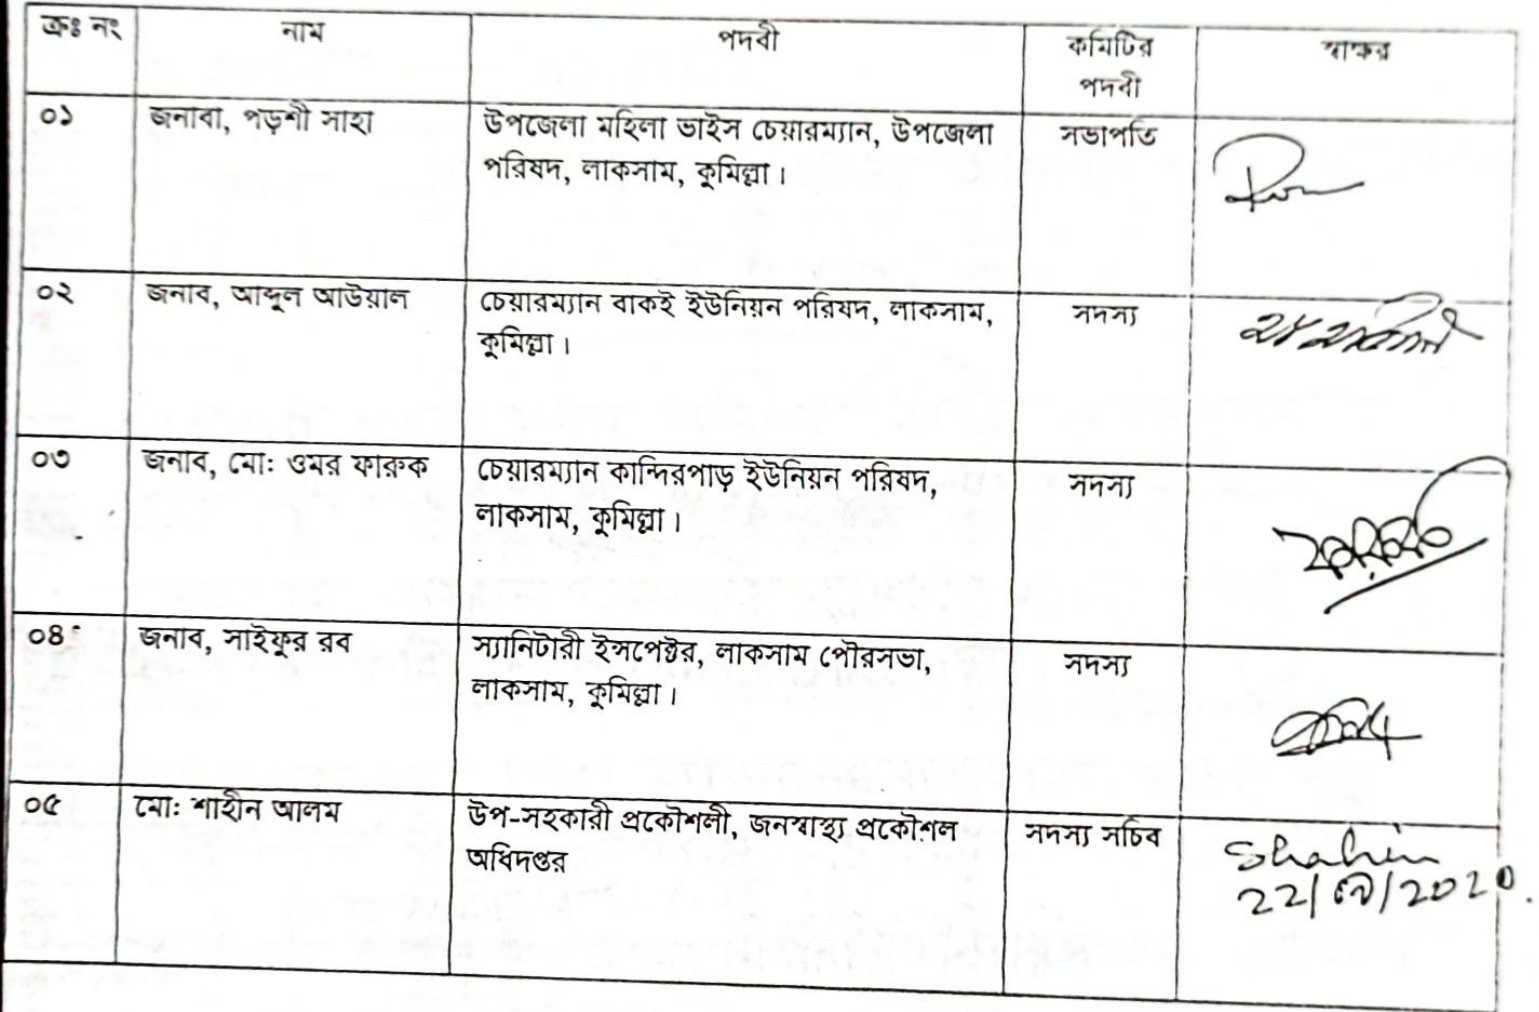 ক্রঃ নং নাম পদবী কমিটির পদবী স্বাক্ষর
০১ জনাবা, পড়শী সাহা উপজেলা মহিলা ভাইস চেয়ারম্যান, উপজেলা সভাপতি
পরিষদ, লাকসাম, কুমিল্লা।
০২ জনাব, আব্দুল আউয়াল চেয়ারম্যান বাকই ইউনিয়ন পরিষদ, লাকসাম, সদস্য
কুমিল্লা।
০৩ জনাব, মোঃ ওমর ফারুক চেয়ারম্যান কান্দিরপাড় ইউনিয়ন পরিষদ, সদস্য
লাকসাম, কুমিল্লা।
০৪ জনাব, সাইফুর রব স্যানিটারী ইন্সপেক্টর, লাকসাম পৌরসভা, সদস্য
লাকসাম, কুমিল্লা।
০৫ মোঃ শাহীন আলম উপ-সহকারী প্রকৌশলী, জনস্বাস্থ্য প্রকৌশল সদস্য সচিব Shahin
অধিদপ্তর